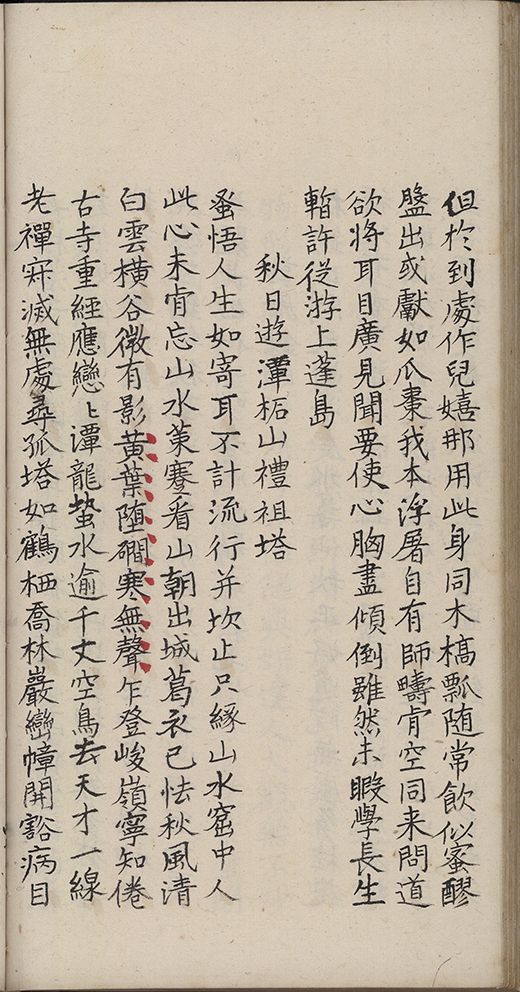 但於到處作兒嬉那用此身同木槁瓢随常飲似蜜醪
盤出或獻如瓜棗我本浮屠自有師疇肯空同来問道
欲将耳目廣見聞要使心胸盡傾倒雖然未暇學長生
暫許從游上蓬島
秋日遊潭柘山禮祖塔
蚤悟人生如寄耳不計流行并坎止只緣山水窟中人
此心未肯忘山水策蹇看山朝出城葛衣已怯秋風清
白雲橫谷微有影黃葉堕磵寒無聲乍登峻嶺寧知倦
古寺重經應戀〻潭龍蟄水逾千丈空鳥去天才一線
老禪寂滅無處尋孤塔如鶴栖喬林巖巒幛開豁病目